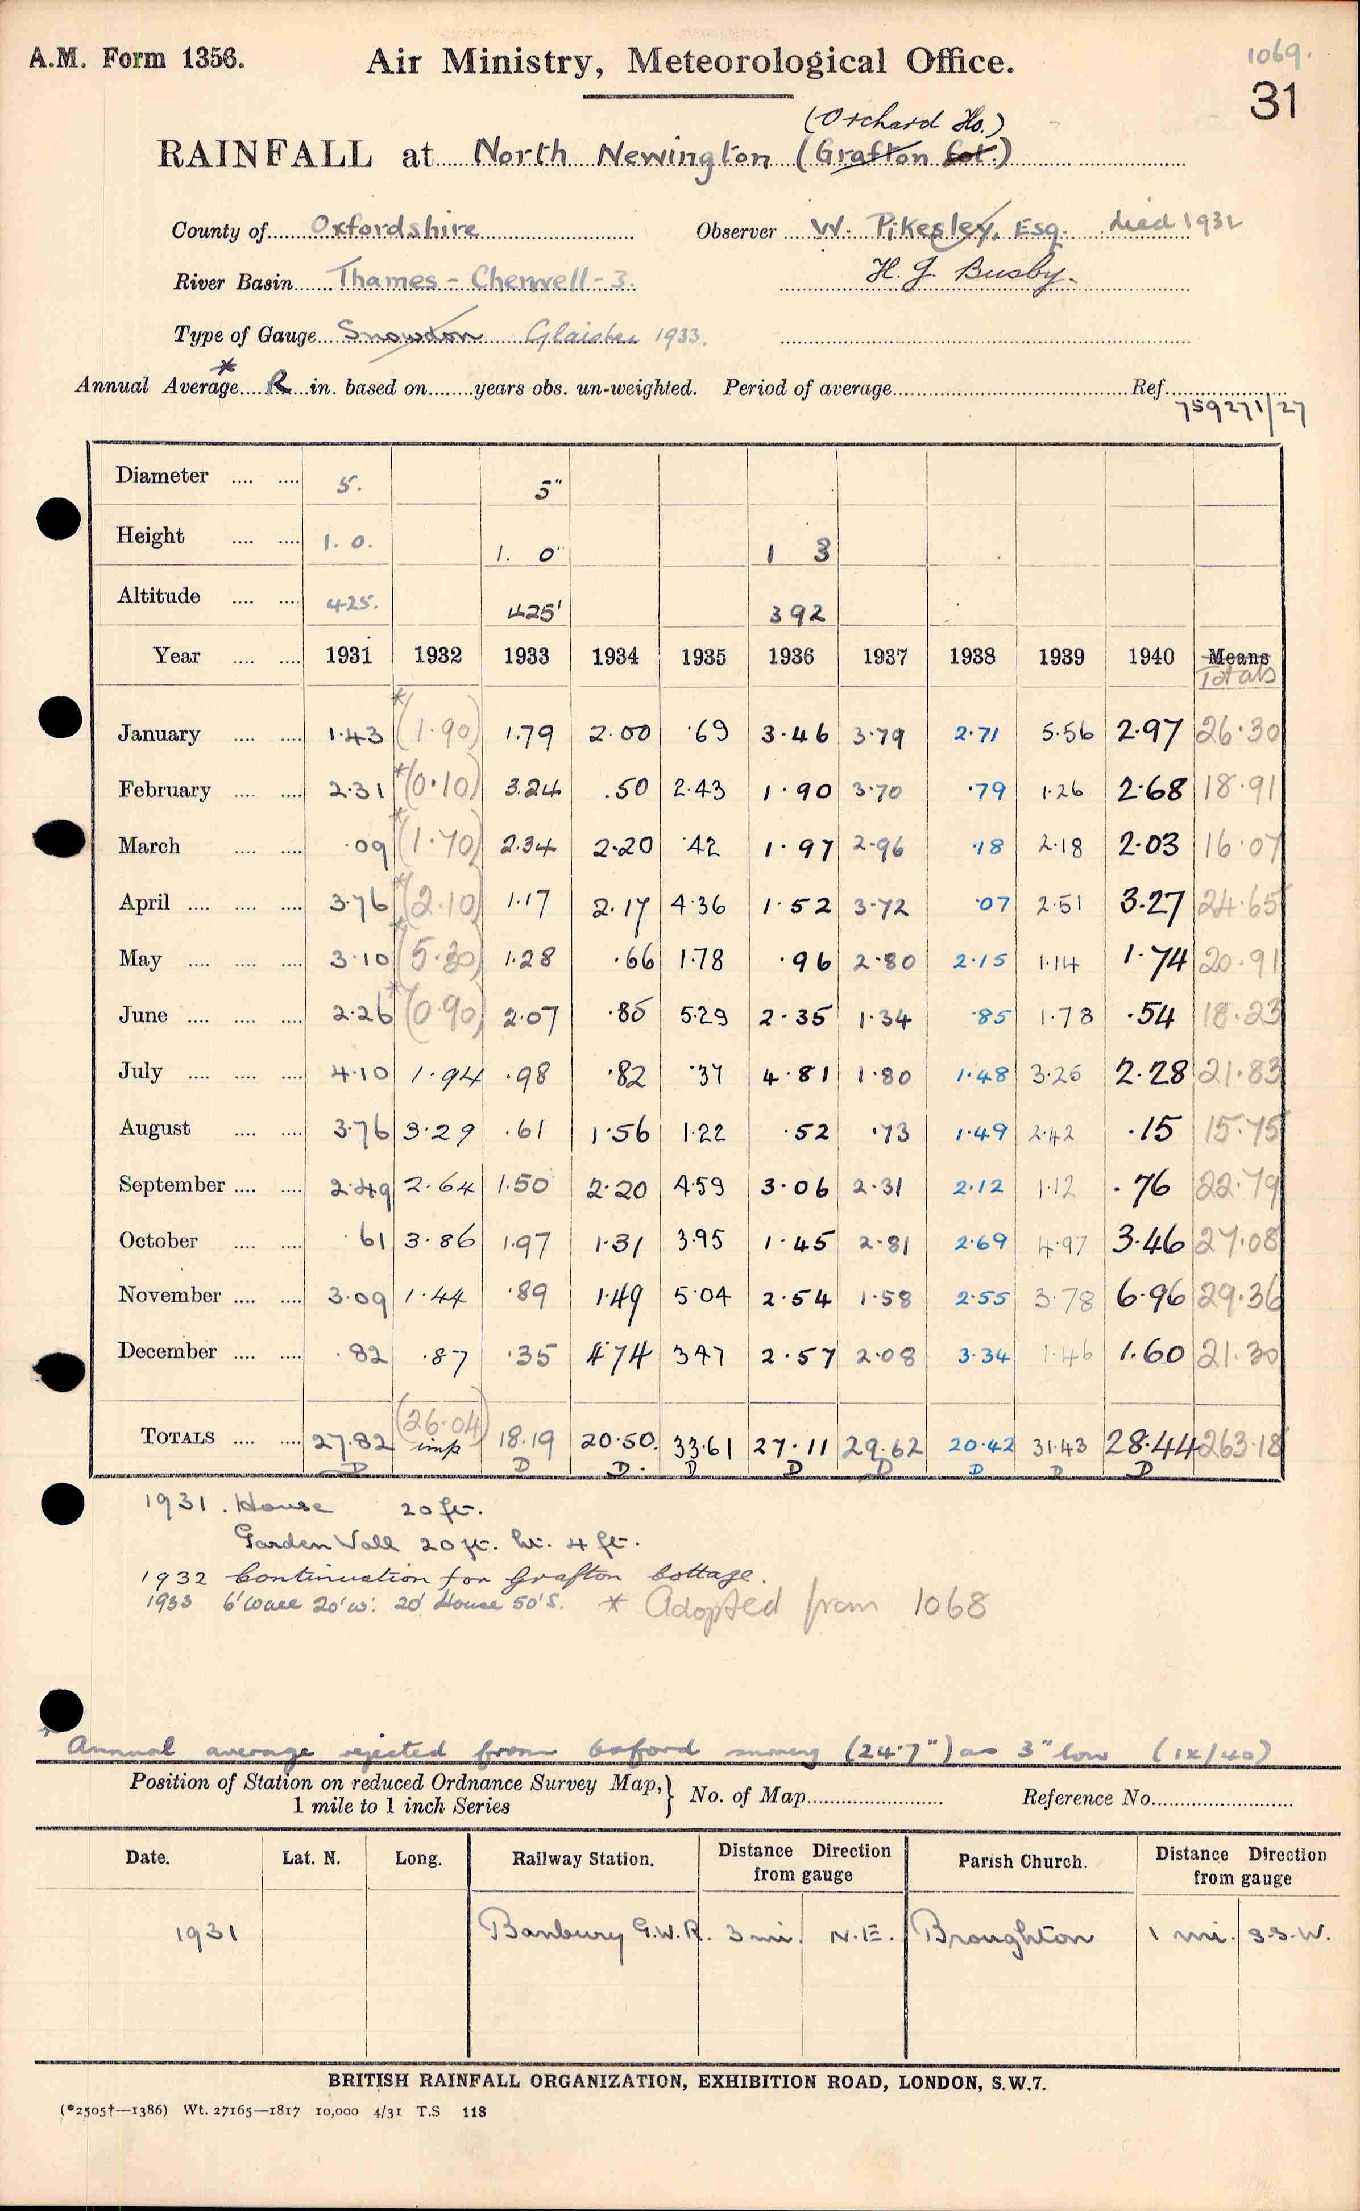 A.M. Form 1356. Air Ministry, Meteorological Office. 1069.
31
(Orchard Ho.)
RAINFALL at North Newington (Grafton Cot.)
County of Oxfordshire Observer W. Pikesley, Esq. died 1932
River Basin Thames - Cherwell - 3. H. J. Busby.
Type of Gauge Snowdon Glaisher 1933.
*
Annual Average R in. based on years obs. un-weighted. Period of average Ref.
759271/27
Diameter 5. 5"
Height 1. 0. 1. 0" 1 3
Altitude 425. 425' 392
Year 1931 1932 1933 1934 1935 1936 1937 1938 1939 1940 Means
Totals
January 1.43 *(1.90) 1.79 2.00 .69 3.46 3.79 2.71 5.56 2.97 26.30
February 2.31 *(0.10) 3.24 .50 2.43 1.90 3.70 .79 1.26 2.68 18.91
March .09 *(1.70) 2.34 2.20 .42 1.97 2.96 .18 2.18 2.03 16.07
April 3.76 *(2.10) 1.17 2.17 4.36 1.52 3.72 .07 2.51 3.27 24.65
May 3.10 *(5.30) 1.28 .66 1.78 .96 2.80 2.15 1.14 1.74 20.91
June 2.26 *(0.90) 2.07 .85 5.29 2.35 1.34 .85 1.78 .54 18.23
July 4.10 1.94 .98 .82 .37 4.81 1.80 1.48 3.25 2.28 21.83
August 3.76 3.29 .61 1.56 1.22 .52 .73 1.49 2.42 .15 15.75
September 2.49 2.64 1.50 2.20 4.59 3.06 2.31 2.12 1.12 .76 22.79
October .61 3.86 1.97 1.31 3.95 1.45 2.81 2.69 4.97 3.46 27.08
November 3.09 1.44 .89 1.49 5.04 2.54 1.58 2.55 3.78 6.96 29.36
December .82 .87 .35 4.74 3.47 2.57 2.08 3.34 1.46 1.60 21.30
Totals 27.82 (26.04) imp 18.19 20.50. 33.61 27.11 29.62 20.42 31.43 28.44 263.18
D D D. D D D D D D
1931. House 20 ft.
Garden Wall 20 ft. ht. 4 ft.
1932 Continuation for Grafton Cottage.
1933 6' wall 20' W. 20' House 50' S. * Adopted from 1068
* Annual average rejected from Oxford memory (24.7") as 3" low (IX/40)
Position of Station on reduced Ordnance Survey Map, } No. of Map Reference No.
1 mile to 1 inch Series
Date. Lat. N. Long. Railway Station. Distance Direction from gauge Parish Church. Distance Direction from gauge
1931 Banbury G.W.R. 3 mi. N.E. Broughton 1 mi. S.S.W.
BRITISH RAINFALL ORGANIZATION, EXHIBITION ROAD, LONDON, S.W.7.
(*2505†—1386) Wt. 27165—1817 10,000 4/31 T.S 118